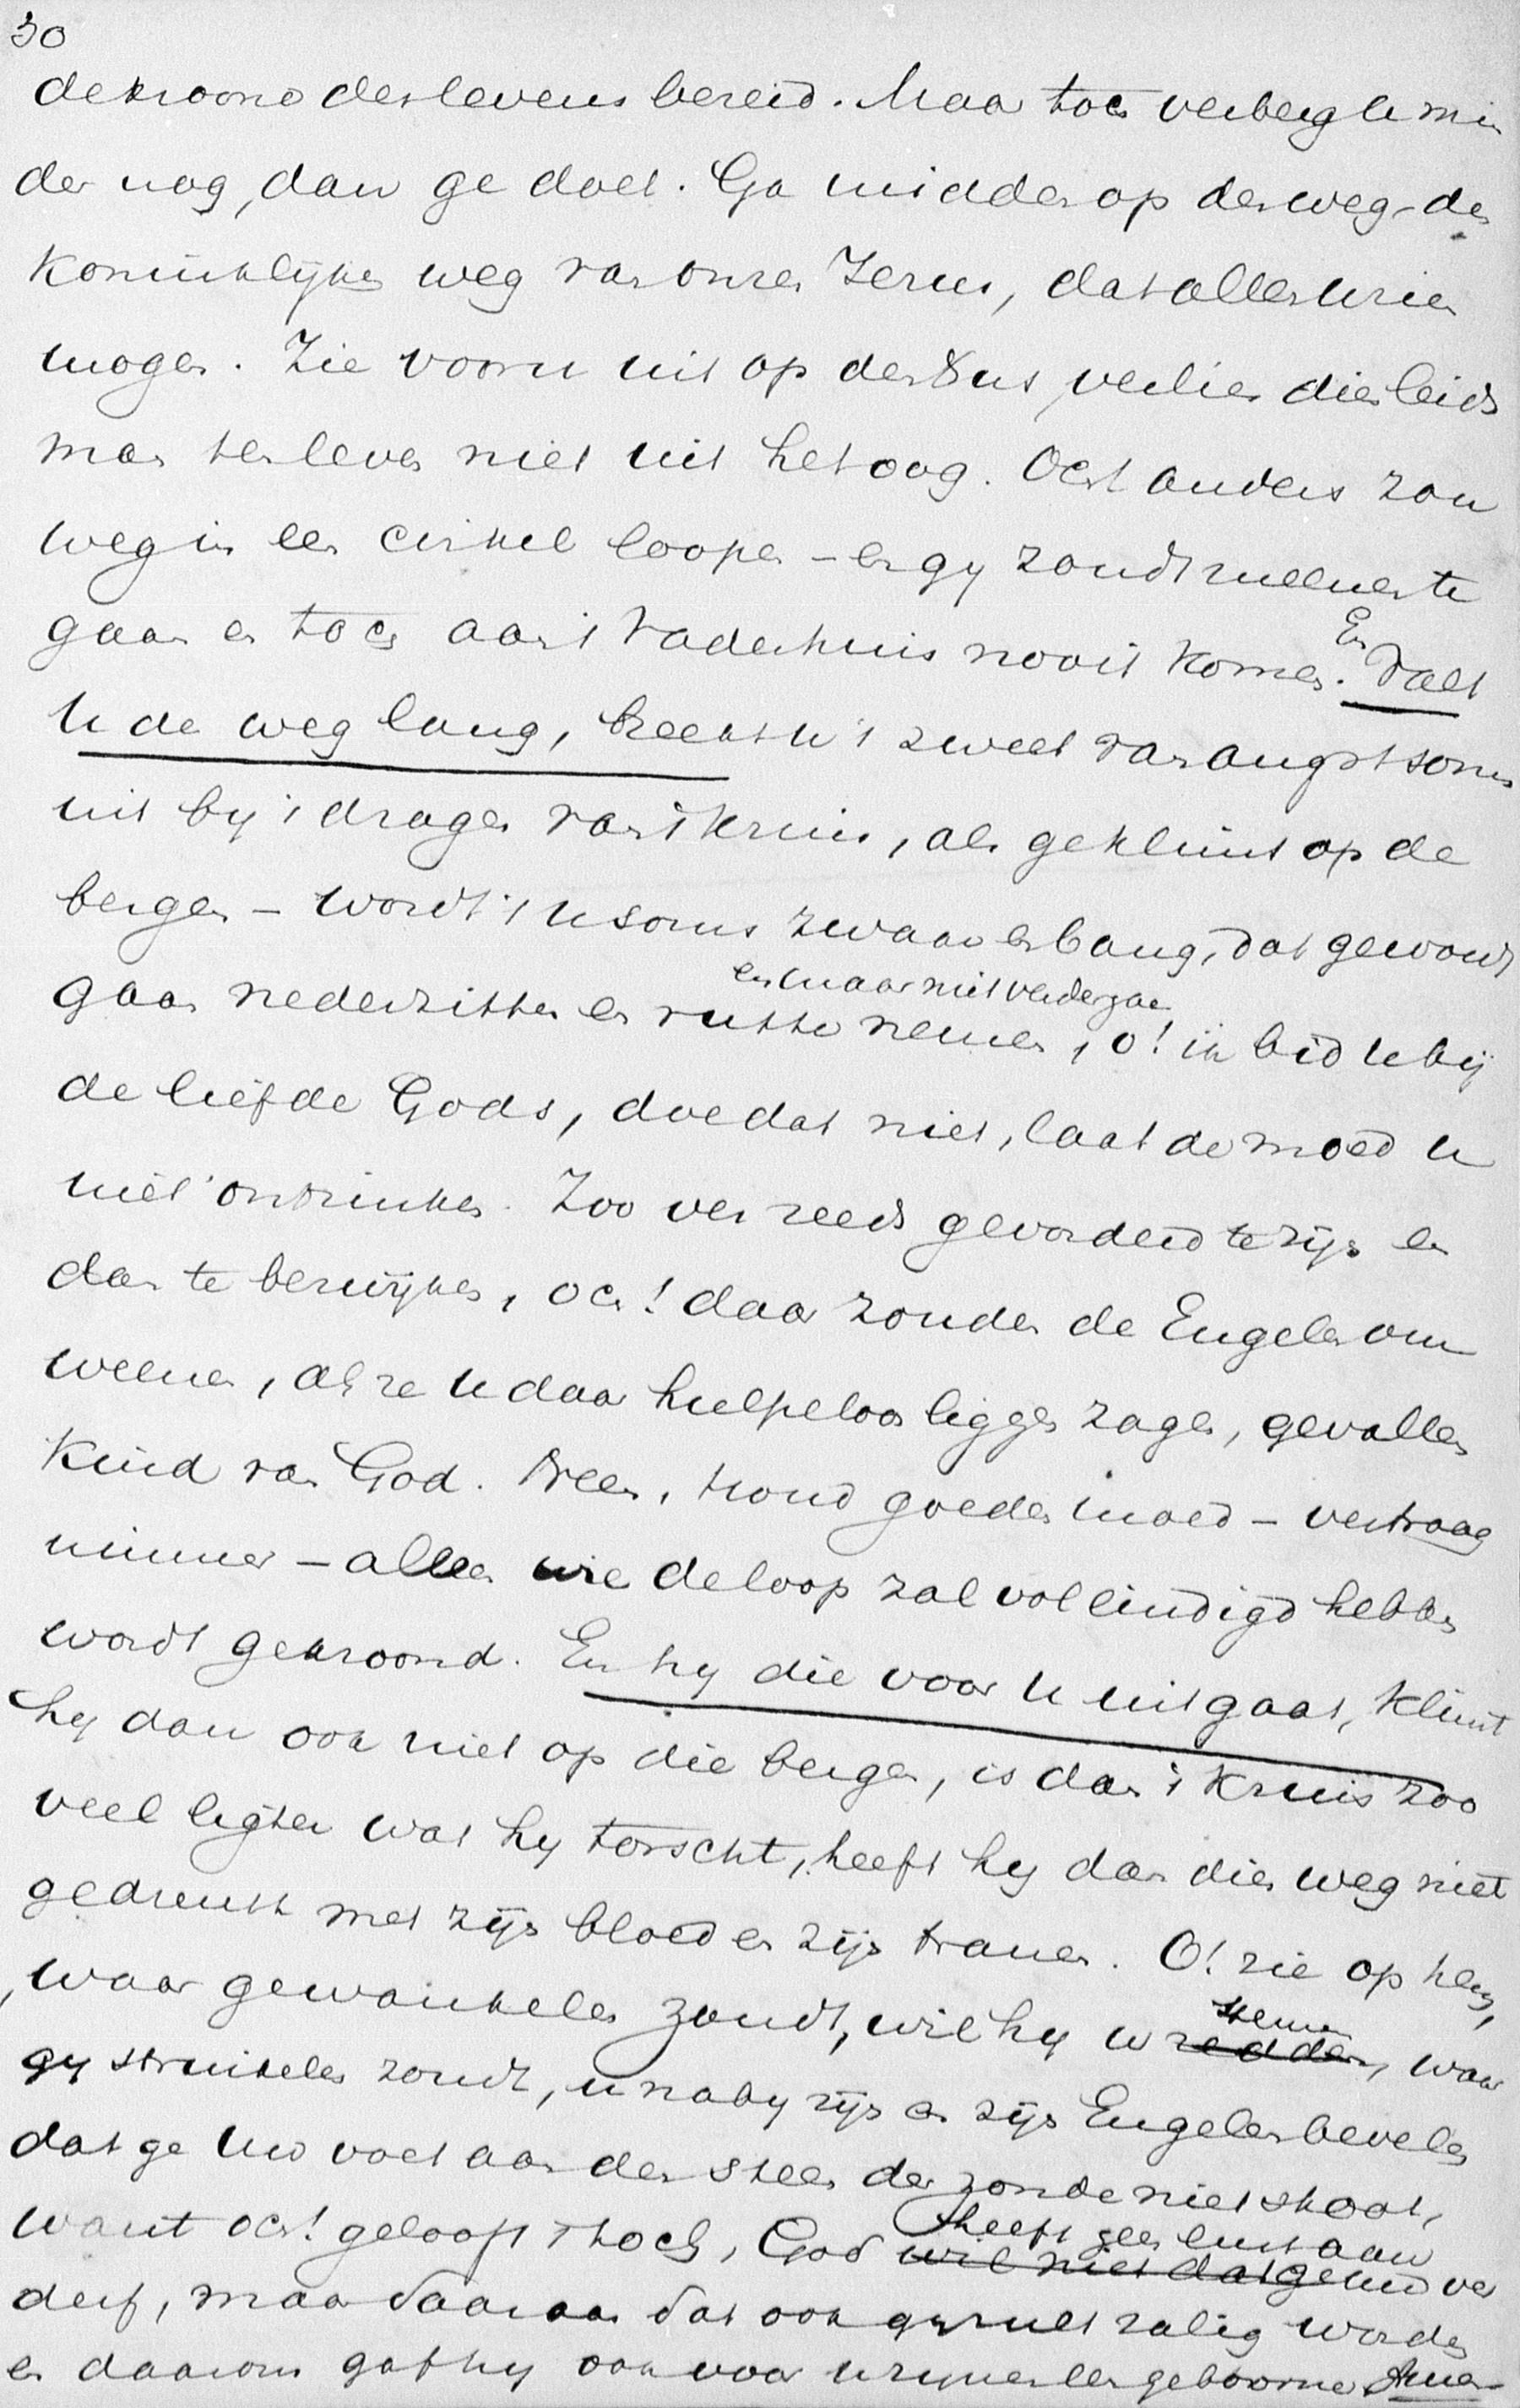 30
de kroone des levens bereid. Maar toch verberg U min
der nog, dan ge doet. Ga midden op den weg - den
koninklijken weg van onzen Jezus, dat allen U zien
mogen. Zie vooruit op den Zoon, verlies dien leids
man ten leven niet uit het oog. Och anders zou
weg in een cirkel loopen - en gy zoudt meenen te
gaan en toch aan 't Vaderhuis nooit komen. En valt
U de weg lang, breekt U 't zweet van angst soms
uit by 't dragen van 't kruis, als ge klimt op de
bergen - wordt 't U soms zwaar en bang, dat ge woudt
gaan nederzitten en ruste nemen en maar niet verder gaan, o! ik bid U bij
de liefde Gods, doe dat niet, laat de moed U
niet ontzinken. Zoo ver reeds gevorderd te zijn en
dan te bezwijken, och! daar zouden de Engelen om
weenen, als ze U daar hulpeloos liggen zagen, gevallen
kind van God. Neen, houd goeden moed - vertraag
nimmer - alleen wie de loop zal voleindigd hebben
wordt gekroond. En hy die voor U uitgaat, klimt
hy dan ook niet op die bergen, is dan 't kruis zoo
veel ligter wat hy torscht, heeft hy dan dien weg niet
gedrenkt met zijn bloed en zijn tranen. O! zie op hem,
waar ge wankelen zoudt, wil hy U redden steunen, waar
gy struikelen zoudt, U naby zijn en zijn Engelen bevelen
dat ge Uw voet aan den steen der zonde niet stoot,
want och! gelooft 't toch, God wil niet dat ge heeft geen lust aan Uw ver
derf, maar daaraan dat ook gy zult zalig worden
en daarom gaf hy ook voor U zijnen eengeboorne